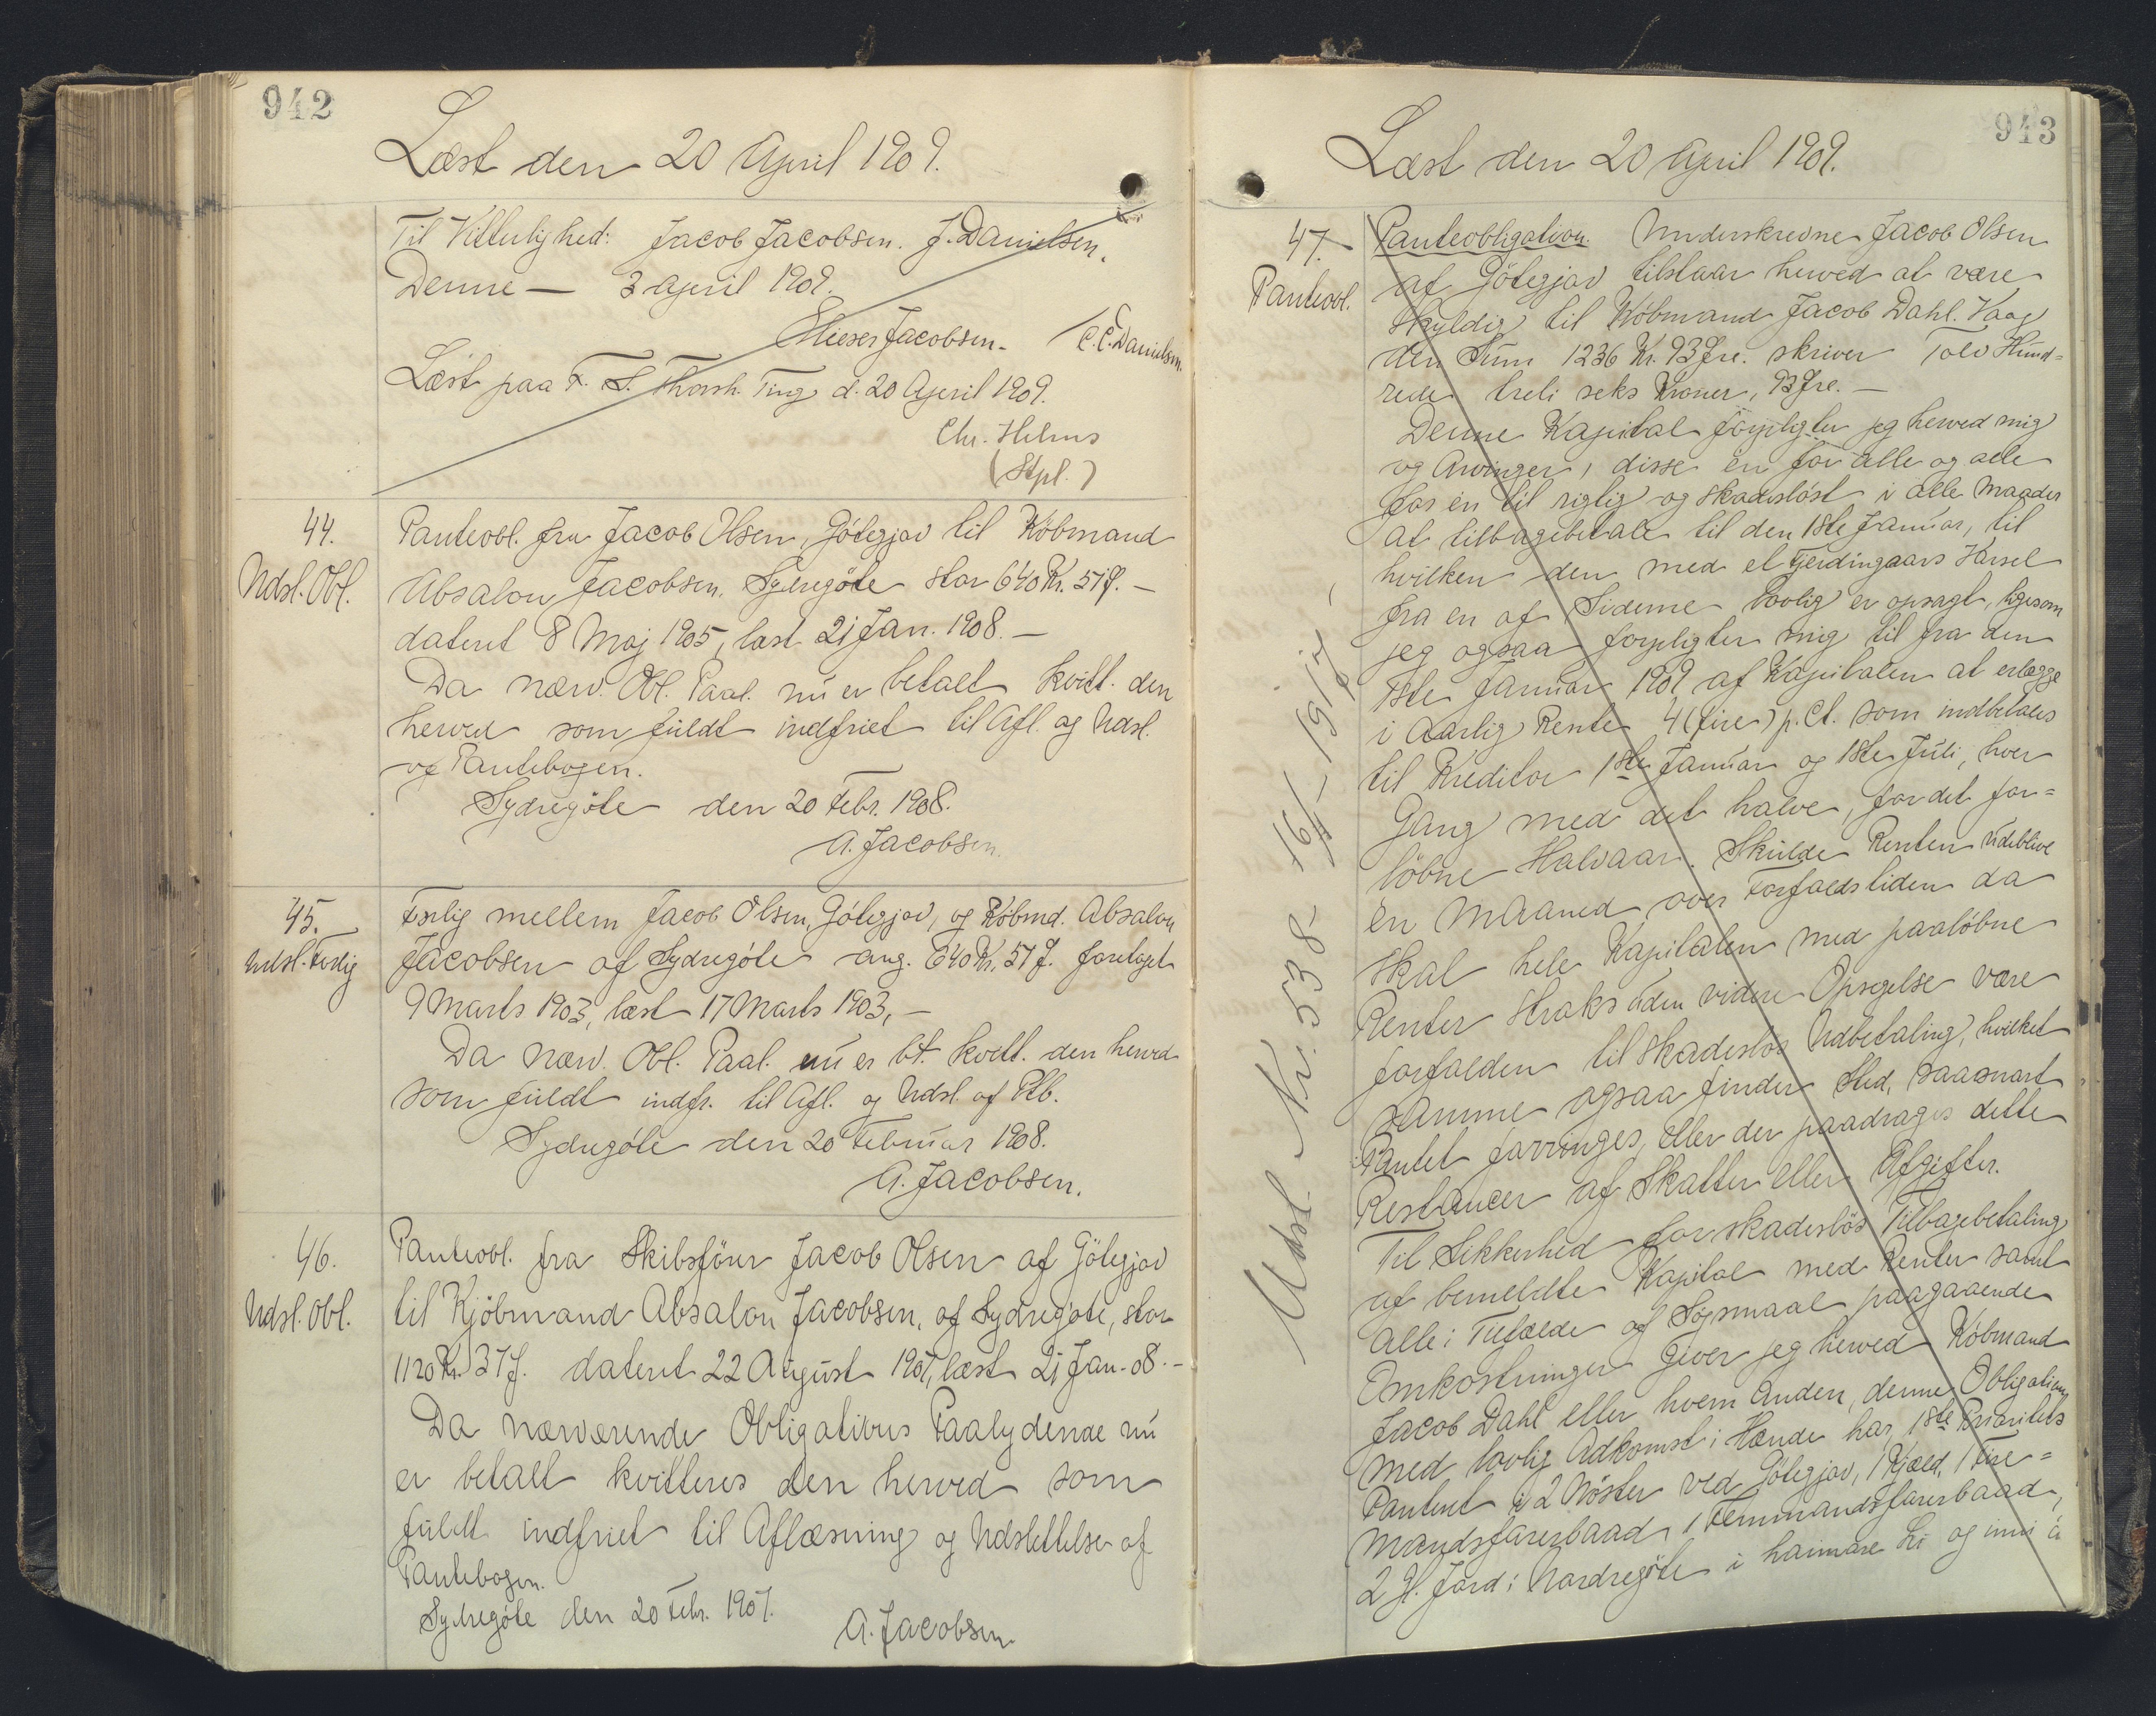 942
Læst den 20 April 1909.
Til Vitterlighed: Jacob Jacobsen. J. Danielsen.
Denne — 3 April 1909.
Elieser Jacobsen. C.C. Danielsen.
Læst paa F. S. Thorsh. Ting d. 20 April 1909.
Chr. Helms
(Stpl.)
44.
Udsl. Obl.
Panteobl. fra Jacob Olsen, Götegjov til Köbmand
Absalon Jacobsen, Sydregöte stor 640 Kr. 51 Ø. —
dateret 8 Maj 1905, læst 21 Jan. 1908. —
Da nærv. Obl. Paal. nu er betalt kvitt. den
herved som fuldt indfriet til Afl. og Udsl.
af Pantebogen.
Sydregöte den 20 Febr. 1908.
A. Jacobsen.
45.
Udsl. Forlig
Forlig mellem Jacob Olsen, Götegjov, og Köbmd. Absalon
Jacobsen af Sydregöte ang. 640 Kr. 51 Ø. foretaget
9 Marts 1903, læst 17 Marts 1903, —
Da nærv. Obl. Paal. nu er bt. kvitt. den herved
som fuldt indfr. til Afl. og Udsl. af Ptb.
Sydregöte den 20 Februar 1908.
A. Jacobsen.
46.
Udsl. Obl.
Panteobl. fra Skibsförer Jacob Olsen af Götegjov
til Kjöbmand Absalon Jacobsen, af Sydregöte, stor
1120 Kr. 37 Ø. dateret 22 August 1907, læst 21 Jan. 08. —
Da nærværende Obligations Paalydende nu
er betalt kvitteres den herved som
fuldt indfriet til Aflæsning og Udslettelse af
Pantebogen.
Sydregöte den 20 Febr. 1907.
A. Jacobsen
943
Læst den 20 April 1909.
47.
Panteobl.
Udsl. Nr. 538
Panteobligation. Underskrevne Jacob Olsen
af Götegjov tilstaar herved at være
skyldig til Köbmand Jacob Dahl. Vaag
den Sum 1236 Kr. 93 Øre. skriver Tolv Hund=
rede treti seks Kroner, 93 Øre. —
Denne Kapital forpligter jeg herved mig
og Arvinger, disse en for alle og alle
for en til rigtig og skadeslöst i alle Maader
at tilbagebetale til den 1ste Januar, til
hvilken den med et Fjerdingaars Varsel
fra en af Siderne lovlig er opsagt, ligesom
jeg ogsaa forpligter mig til fra den
1ste Januar 1909 af Kapitalen at erlægge
i aarlig Rente 4 (fire) p.Ct. som indbetales
til Kreditor 1ste Januar og 1ste Juli, hver
Gang med det halve, for det for=
löbne Halvaar. Skulde Renten udeblive
en Maaned over Forfaldstiden da
skal hele Kapitalen med paalöbne
Renter straks uden videre Opsigelse være
forfalden til skadeslös Udbetaling, hvilket
samme ogsaa finder Sted, saasnart
Pantet forringes, eller der paadrages dette
Restancer af Skatter eller Afgifter.
Til Sikkerhed for skadeslös Tilbagebetaling
af bemeldte Kapital med Renter samt
alle i Tilfælde af Sögsmaal paagaaende
Omkostninger giver jeg herved Köbmand
Jacob Dahl eller hvem anden, denne Obligation
med lovlig Adkomst i Hænde har, 1ste Prioritets
Panteret i 2 Nöster ved Götegjov, 1 Kjæld, 1 Fire=
mandsfarerbaad, 1 Femmandsfarerbaad,
2 G. Jord i Nordregöte i haimare Li og inni á